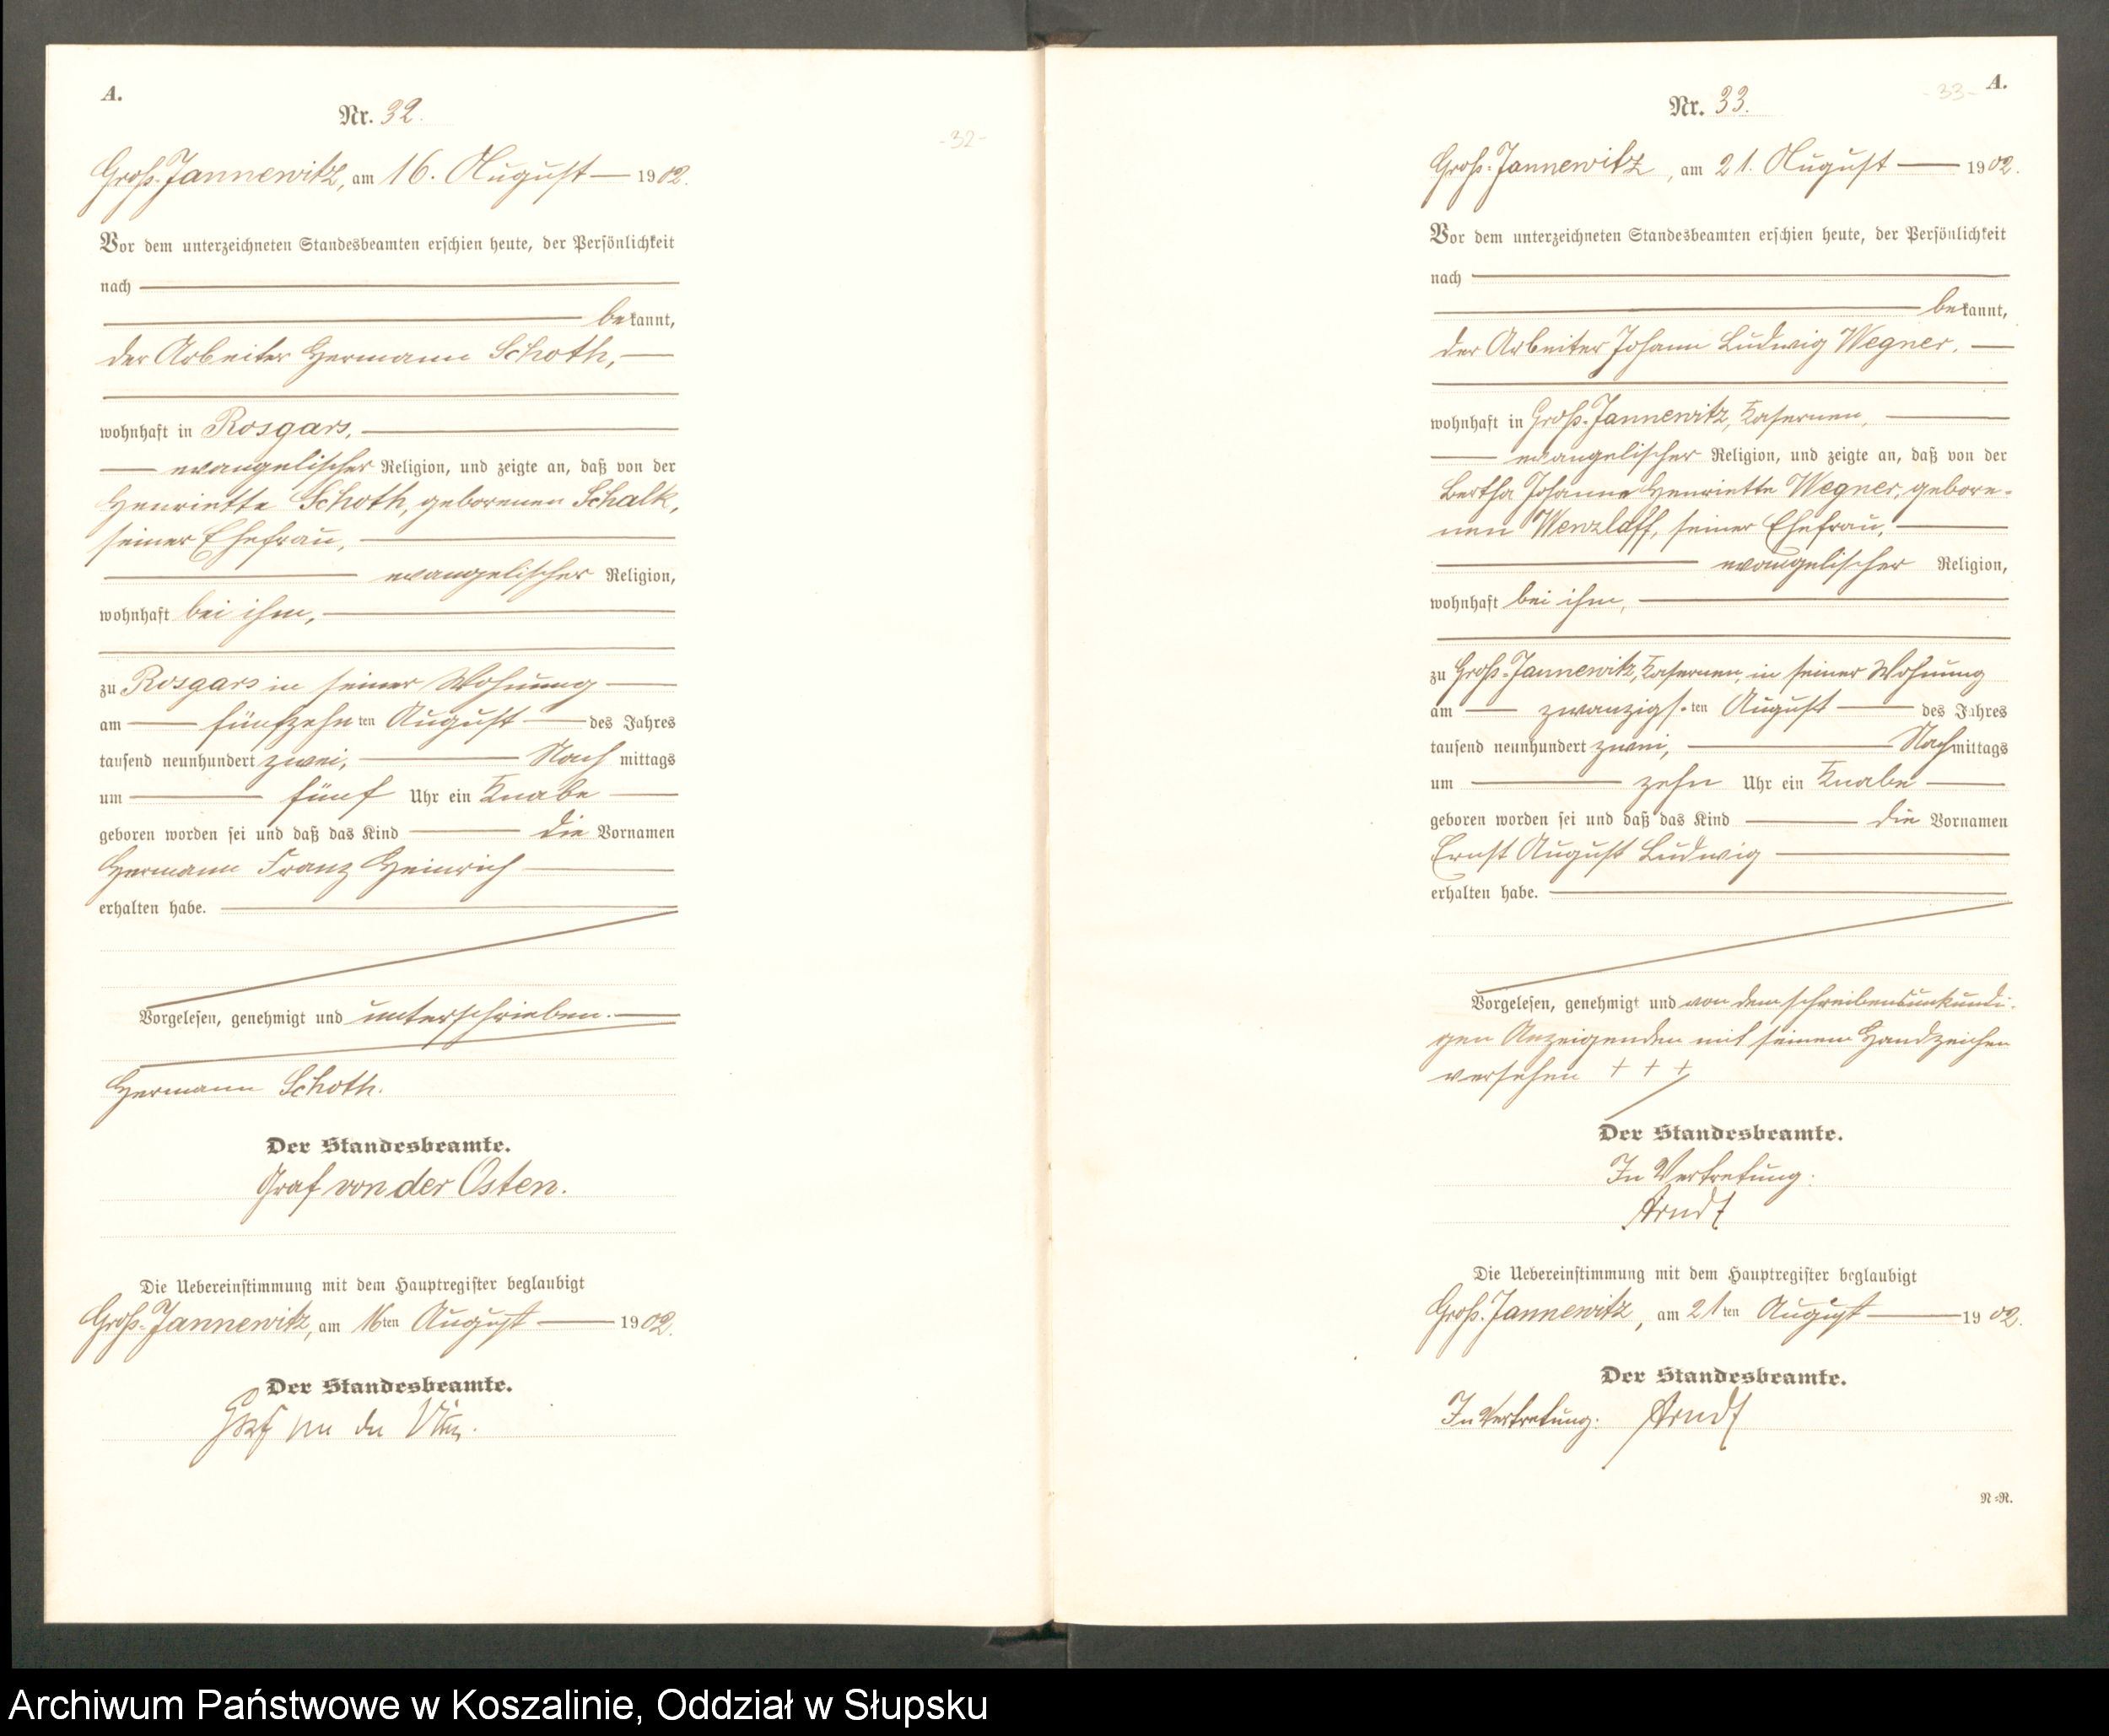 A.
Nr. 32.
-32-
Groß-Jannewitz, am 16. August 1902.
Vor dem unterzeichneten Standesbeamten erschien heute, der Persönlichkeit
nach
bekannt,
der Arbeiter Hermann Schoth,
wohnhaft in Rosgars,
evangelischer Religion, und zeigte an, daß von der
Henriette Schoth, geborenen Schalk,
seiner Ehefrau,
evangelischer Religion,
wohnhaft bei ihm,
zu Rosgars in seiner Wohnung
am fünfzehnten August des Jahres
tausend neunhundert zwei, Nachmittags
um fünf Uhr ein Knabe
geboren worden sei und daß das Kind die Vornamen
Hermann Franz Heinrich
erhalten habe.
Vorgelesen, genehmigt und unterschrieben.
Hermann Schoth.
Der Standesbeamte.
Graf von der Osten.
Die Uebereinstimmung mit dem Hauptregister beglaubigt
Groß-Jannewitz, am 16ten August 1902.
Der Standesbeamte.
Graf von der Osten.
-33-
A.
Nr. 33.
Groß-Jannewitz, am 21. August 1902.
Vor dem unterzeichneten Standesbeamten erschien heute, der Persönlichkeit
nach
bekannt,
der Arbeiter Johann Ludwig Wegner,
wohnhaft in Groß-Jannewitz, Kasernen,
evangelischer Religion, und zeigte an, daß von der
Bertha Johanne Henriette Wegner, gebore-
nen Wenzlaff, seiner Ehefrau,
evangelischer Religion,
wohnhaft bei ihm,
zu Groß-Jannewitz, Kasernen, in seiner Wohnung
am zwanzigsten August des Jahres
tausend neunhundert zwei, Nachmittags
um zehn Uhr ein Knabe
geboren worden sei und daß das Kind die Vornamen
Ernst August Ludwig
erhalten habe.
Vorgelesen, genehmigt und von dem schreibensunkundi-
gen Anzeigenden mit seinem Handzeichen
versehen + + +
Der Standesbeamte.
In Vertretung:
Arndt
Die Uebereinstimmung mit dem Hauptregister beglaubigt
Groß-Jannewitz, am 21ten August 1902.
Der Standesbeamte.
In Vertretung: Arndt
N=R.
Archiwum Państwowe w Koszalinie, Oddział w Słupsku